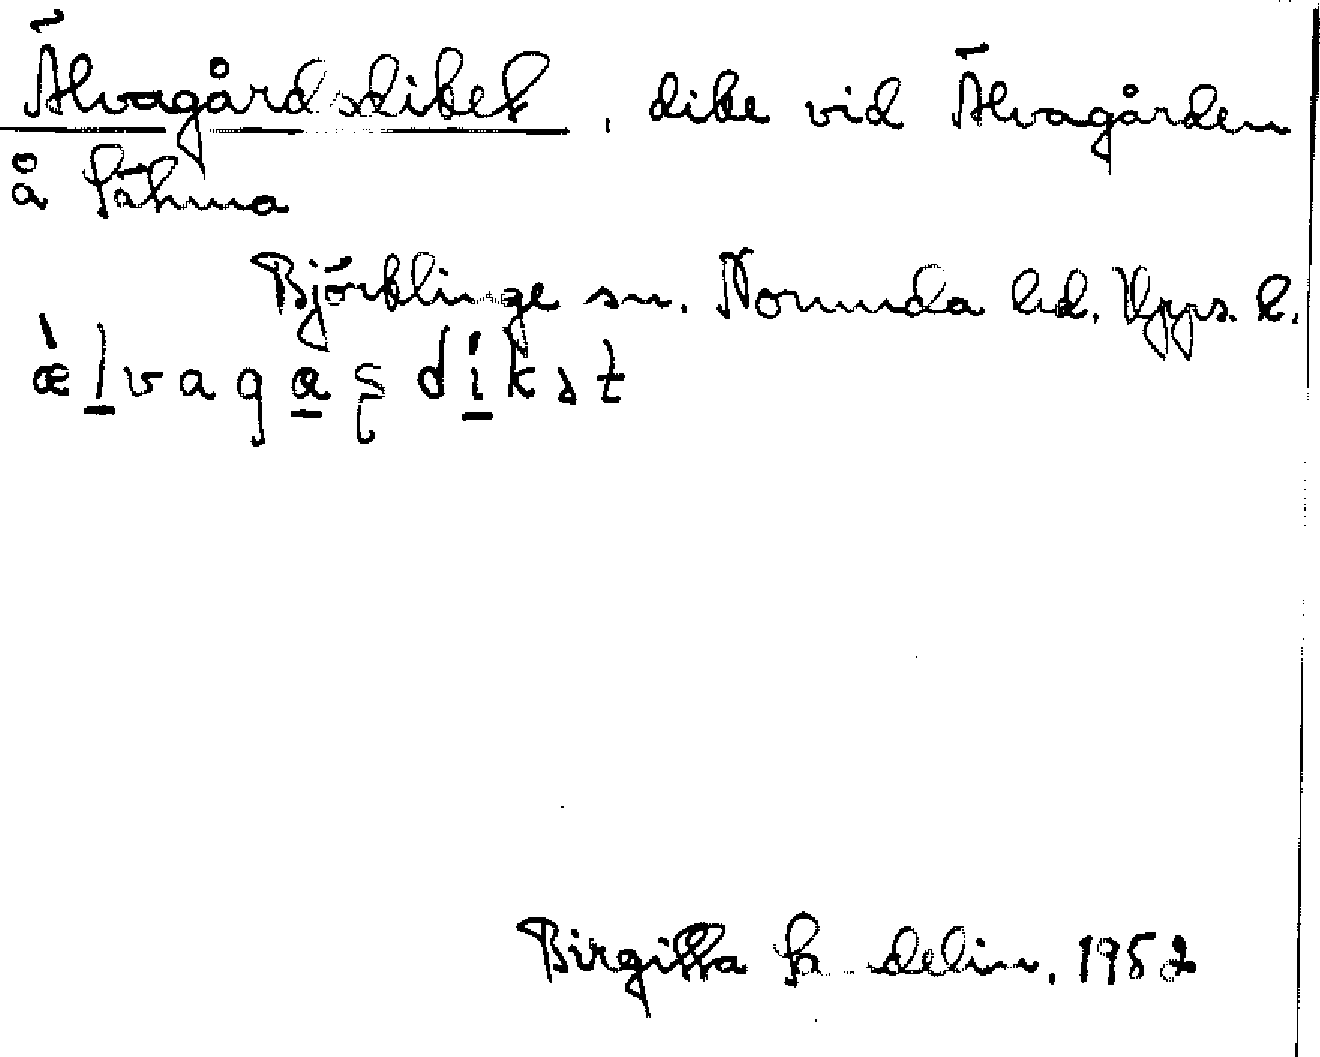 Älvagårdsdiket, dike vid Älvagården
å Sähma
Björklinge sn. Norunda hd. Upps. l.
æ̀lvagaʂdíkət
Birgitta Sandelin. 1952